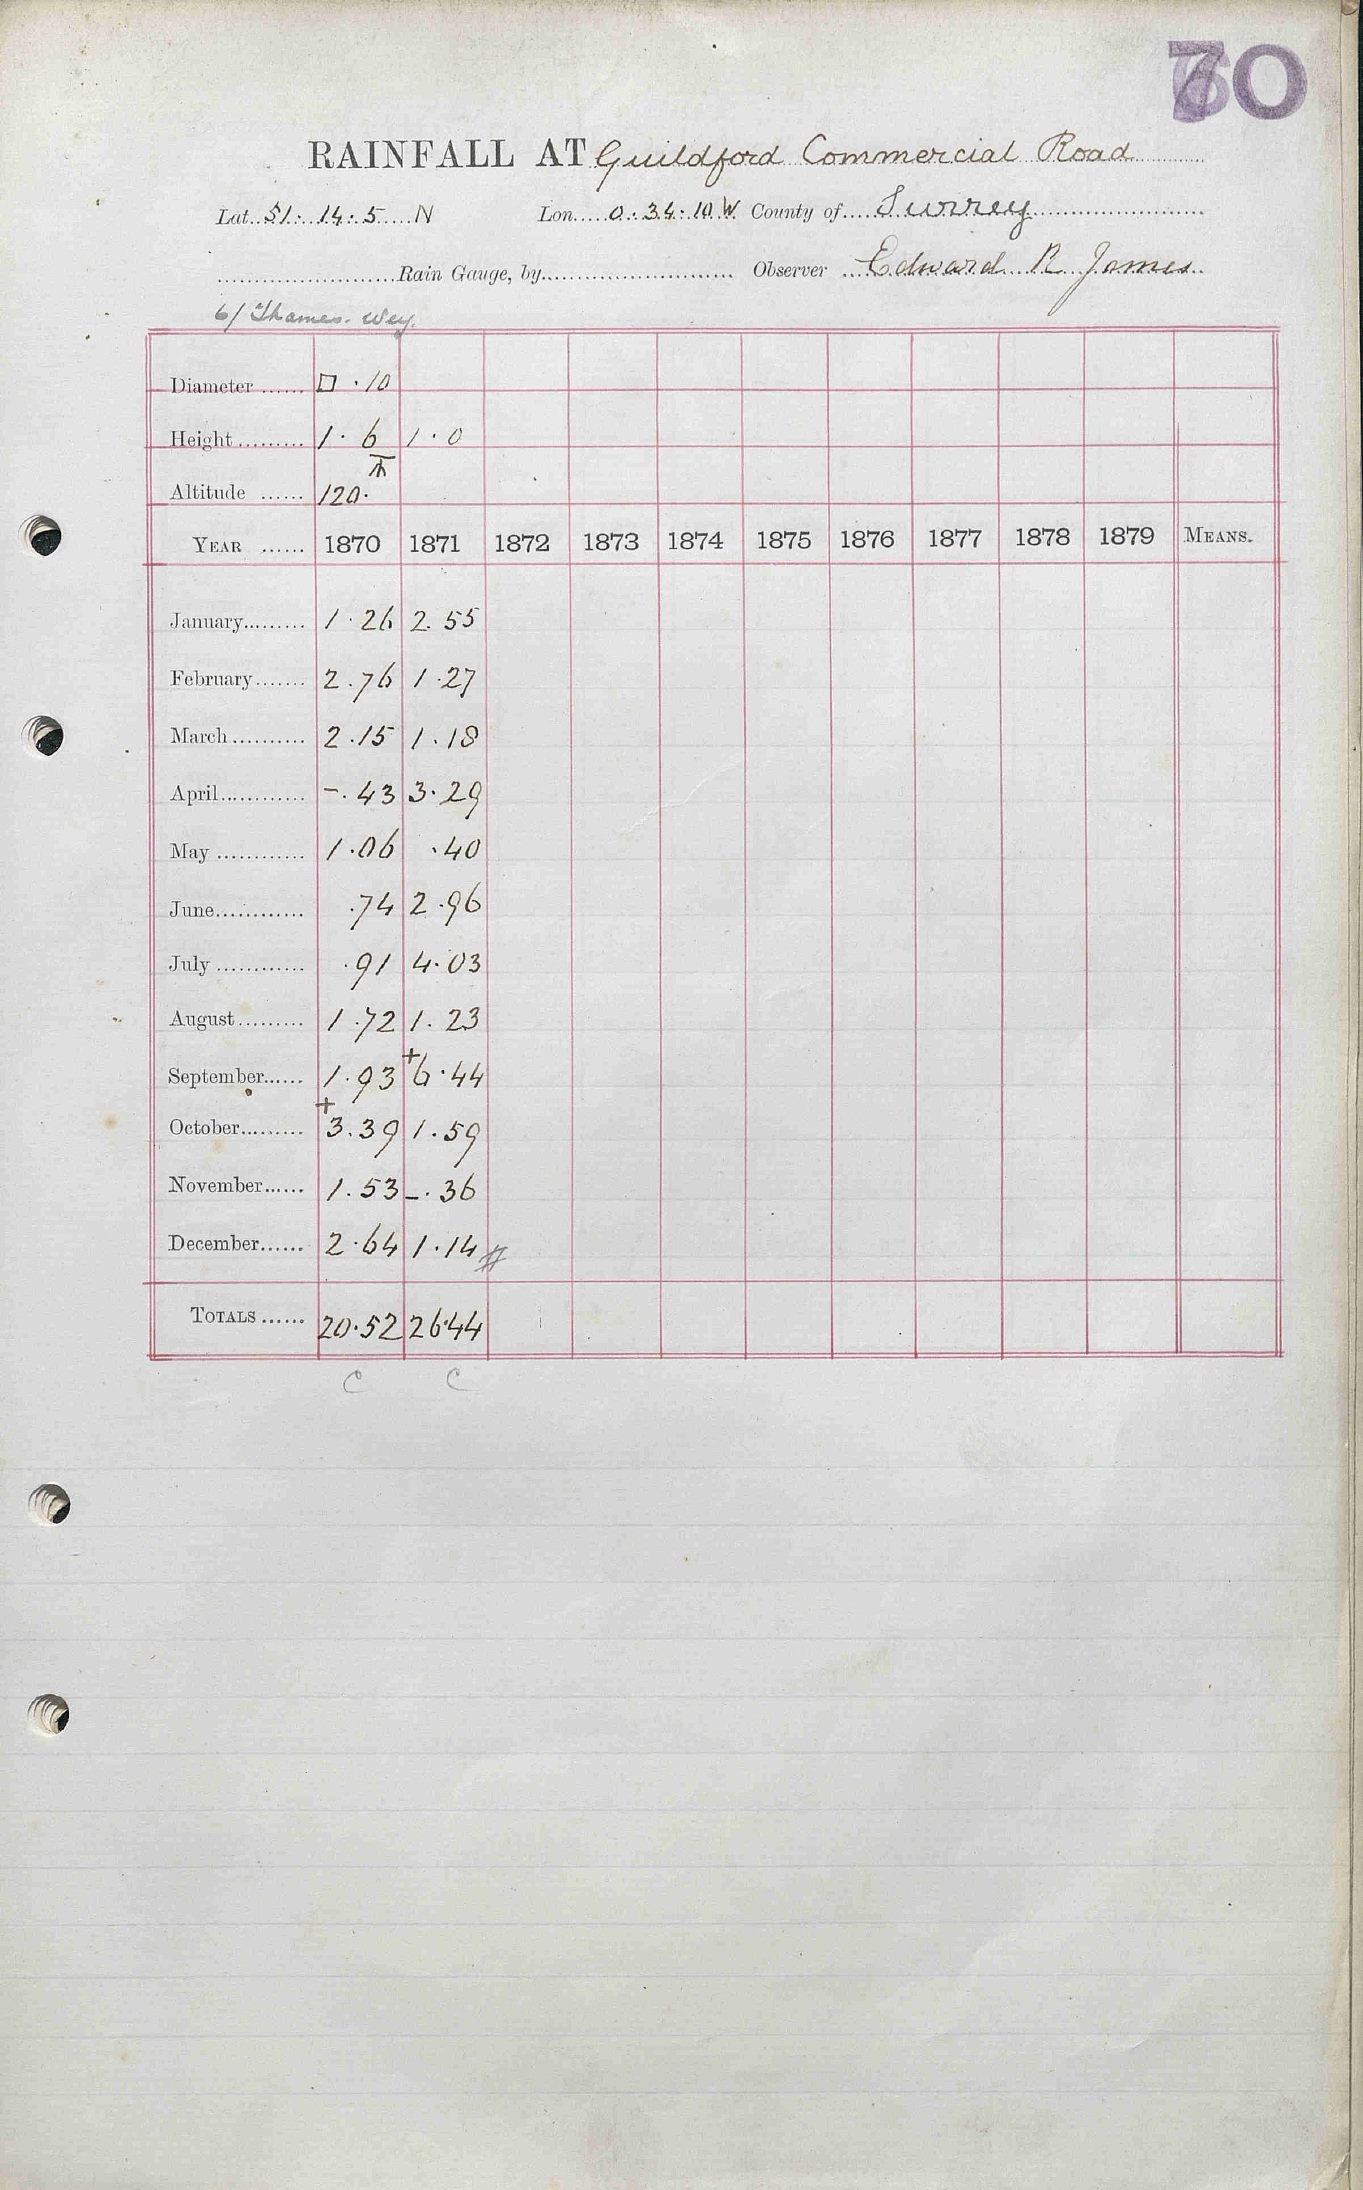 70
RAINFALL AT Guildford Commercial Road
Lat. 51. 14. 5 N Lon. 0. 34. 10 W County of Surrey
Rain Gauge, by Observer Edward R James
6/ Thames. Wey.
Diameter ...... □ .10
Height ......... 1. 6 1.0
Altitude ...... 120.
YEAR ...... 1870 1871 1872 1873 1874 1875 1876 1877 1878 1879 MEANS.
January......... 1.26 2.55
February....... 2.76 1.27
March.......... 2.15 1.18
April............ -.43 3.29
May ............ 1.06 .40
June............ .74 2.96
July ............ .91 4.03
August......... 1.72 1.23
September...... 1.93 +6.44
October......... +3.39 1.59
November...... 1.53 -.36
December...... 2.64 1.14 #
TOTALS ...... 20.52 26.44
C C